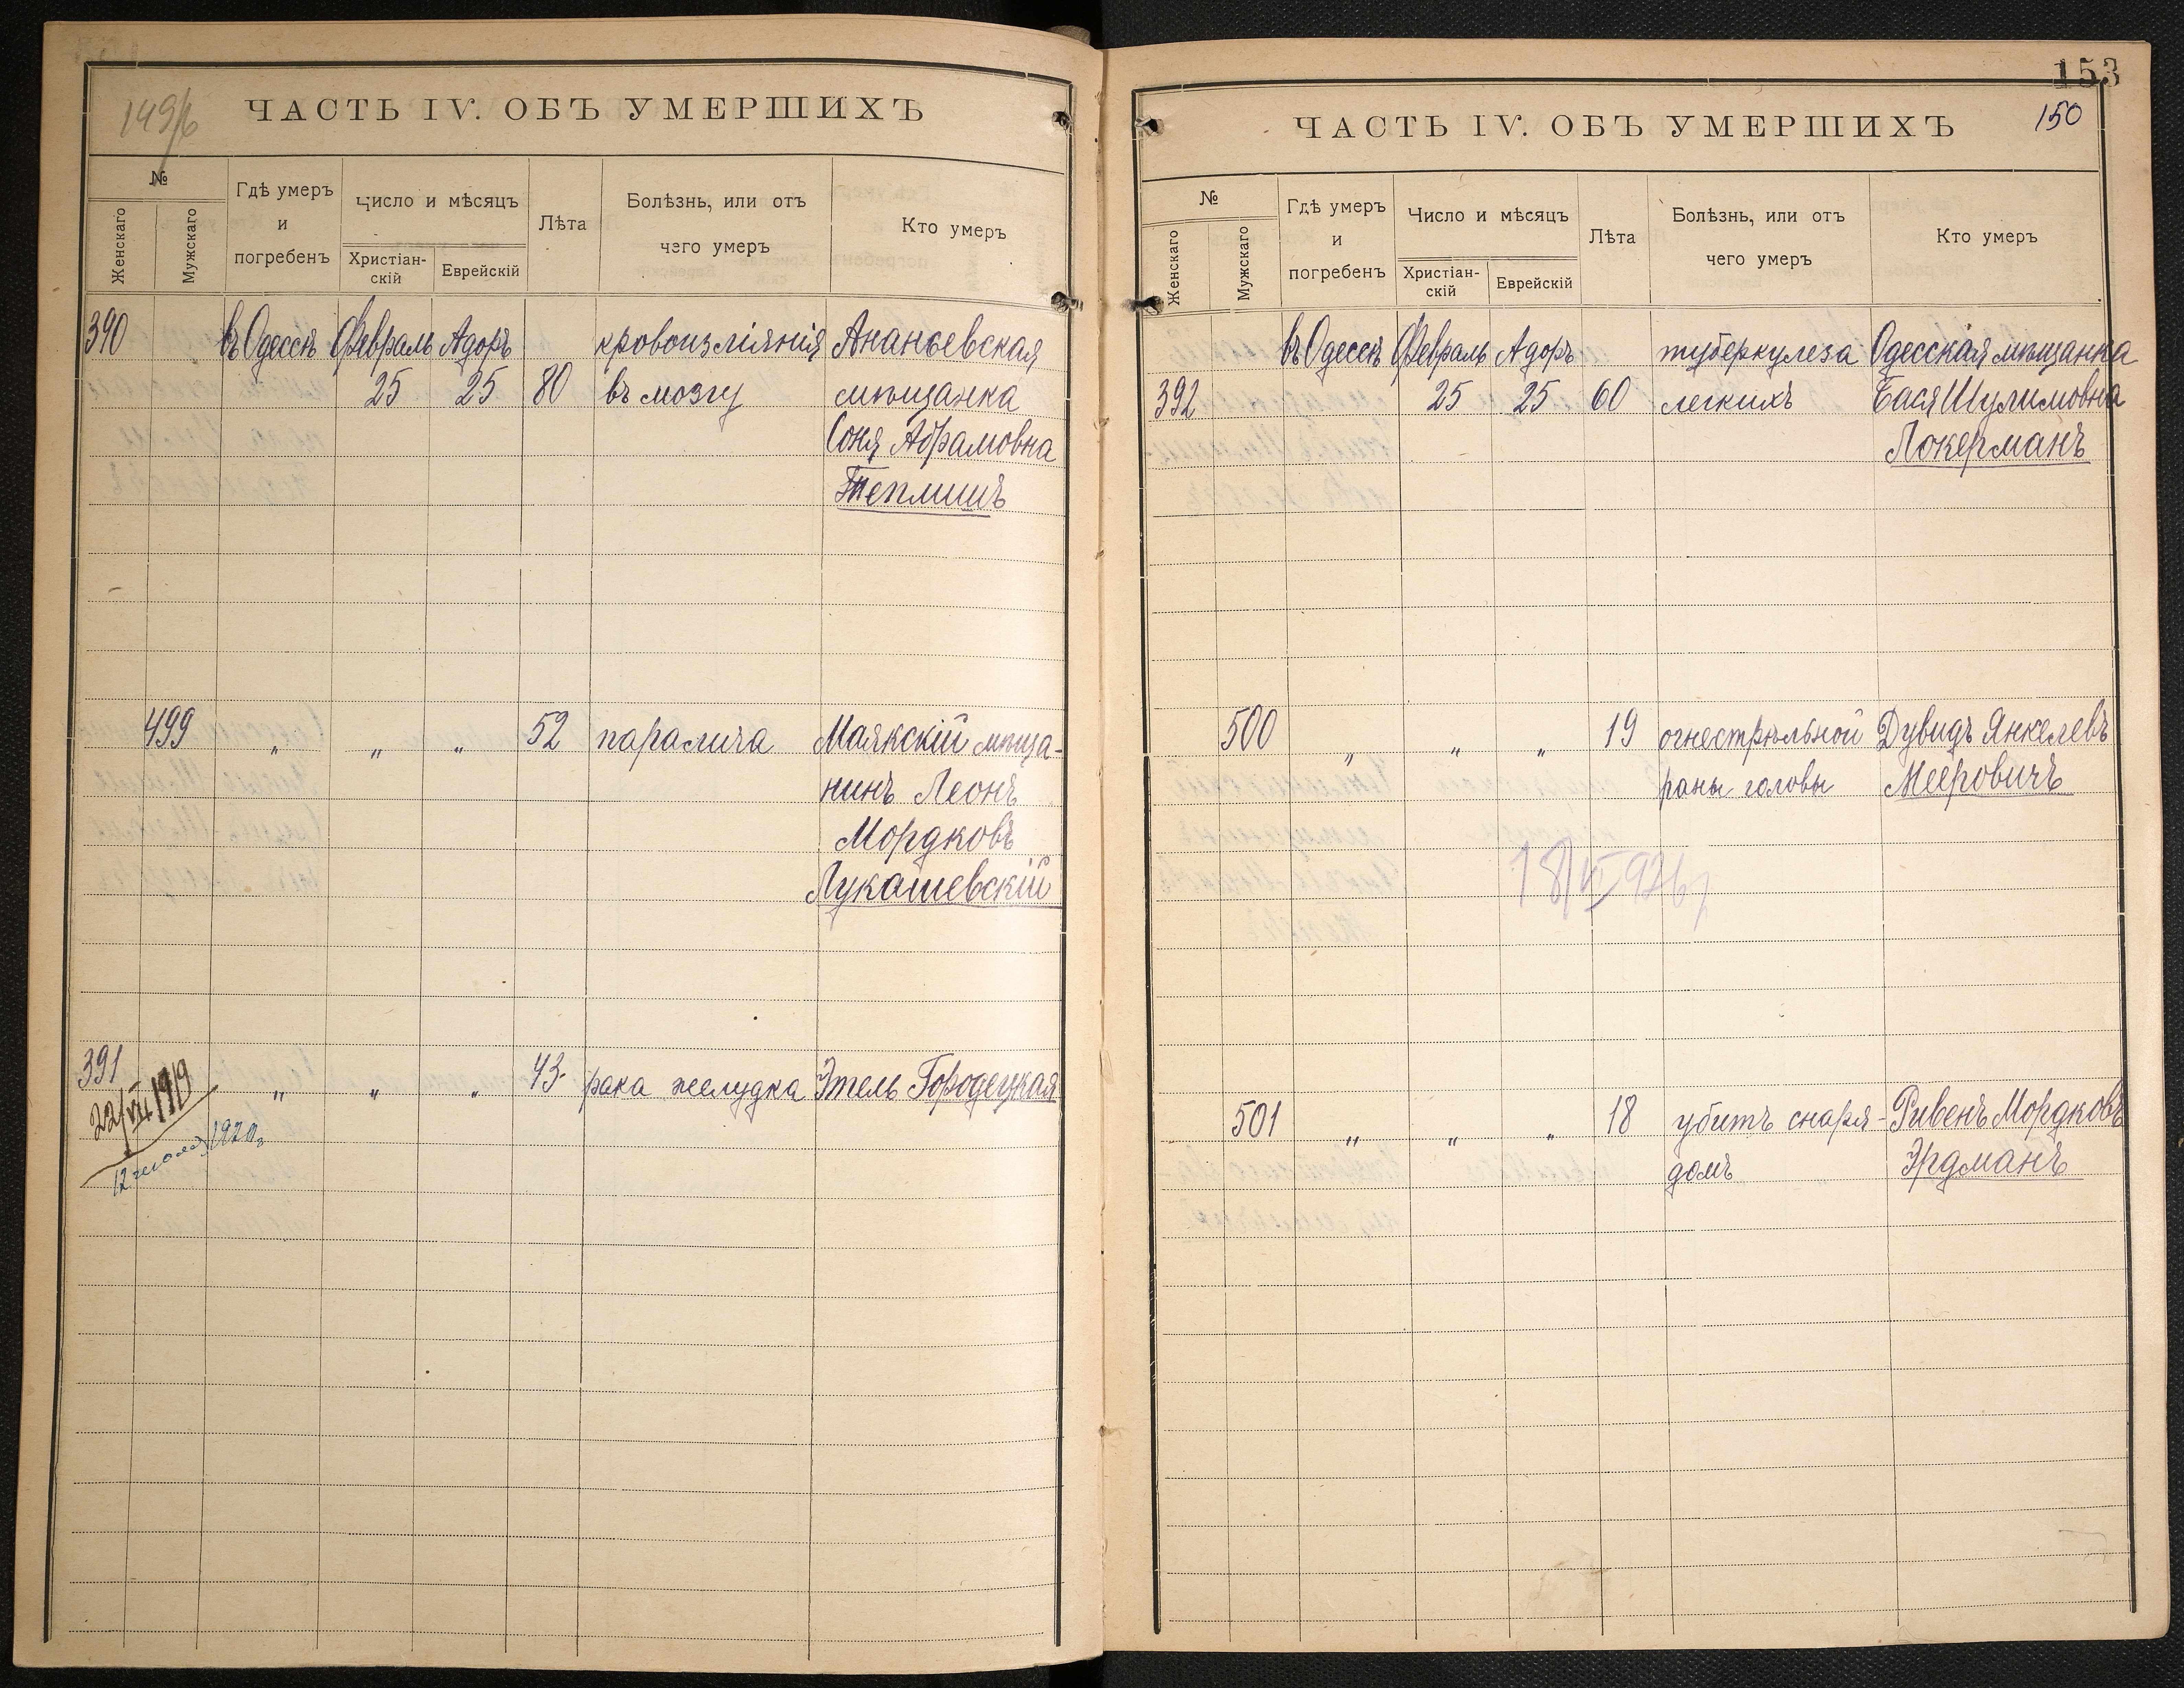 149/б
ЧАСТЬ IV. ОБЪ УМЕРШИХЪ
№
Женскаго
Мужскаго
Гдѣ умеръ
и
погребенъ
Число и мѣсяцъ
Христіан-
скій
Еврейскій
Лѣта
Болѣзнь, или отъ
чего умеръ
Кто умеръ
390 въ Одессѣ Февраль Адоръ кровоизліянія Ананьевская
25 25 80 въ мозгу мѣщанка
Соня Абрамовна
Теплишъ
499 " " " 52 паралича Маякскій мѣща-
нинъ Леонъ
Мордковъ
Лукашевскій
391 " " " 43 рака желудка Этель Городецкая
22/VII 1919
1920г
153
150
ЧАСТЬ IV. ОБЪ УМЕРШИХЪ
№
Женскаго
Мужскаго
Гдѣ умеръ
и
погребенъ
Число и мѣсяцъ
Христіан-
скій
Еврейскій
Лѣта
Болѣзнь, или отъ
чего умеръ
Кто умеръ
въ Одессѣ Февраль Адоръ туберкулеза Одесская мѣщанка
392 25 25 60 легкихъ Бася Шулимовна
Локерманъ
500 " " " 19 огнестрѣльной Дувидъ Янкелевъ
раны головы Мееровичъ
501 " " " 18 убитъ снаря- Рувенъ Мордковъ
домъ Эрдманъ